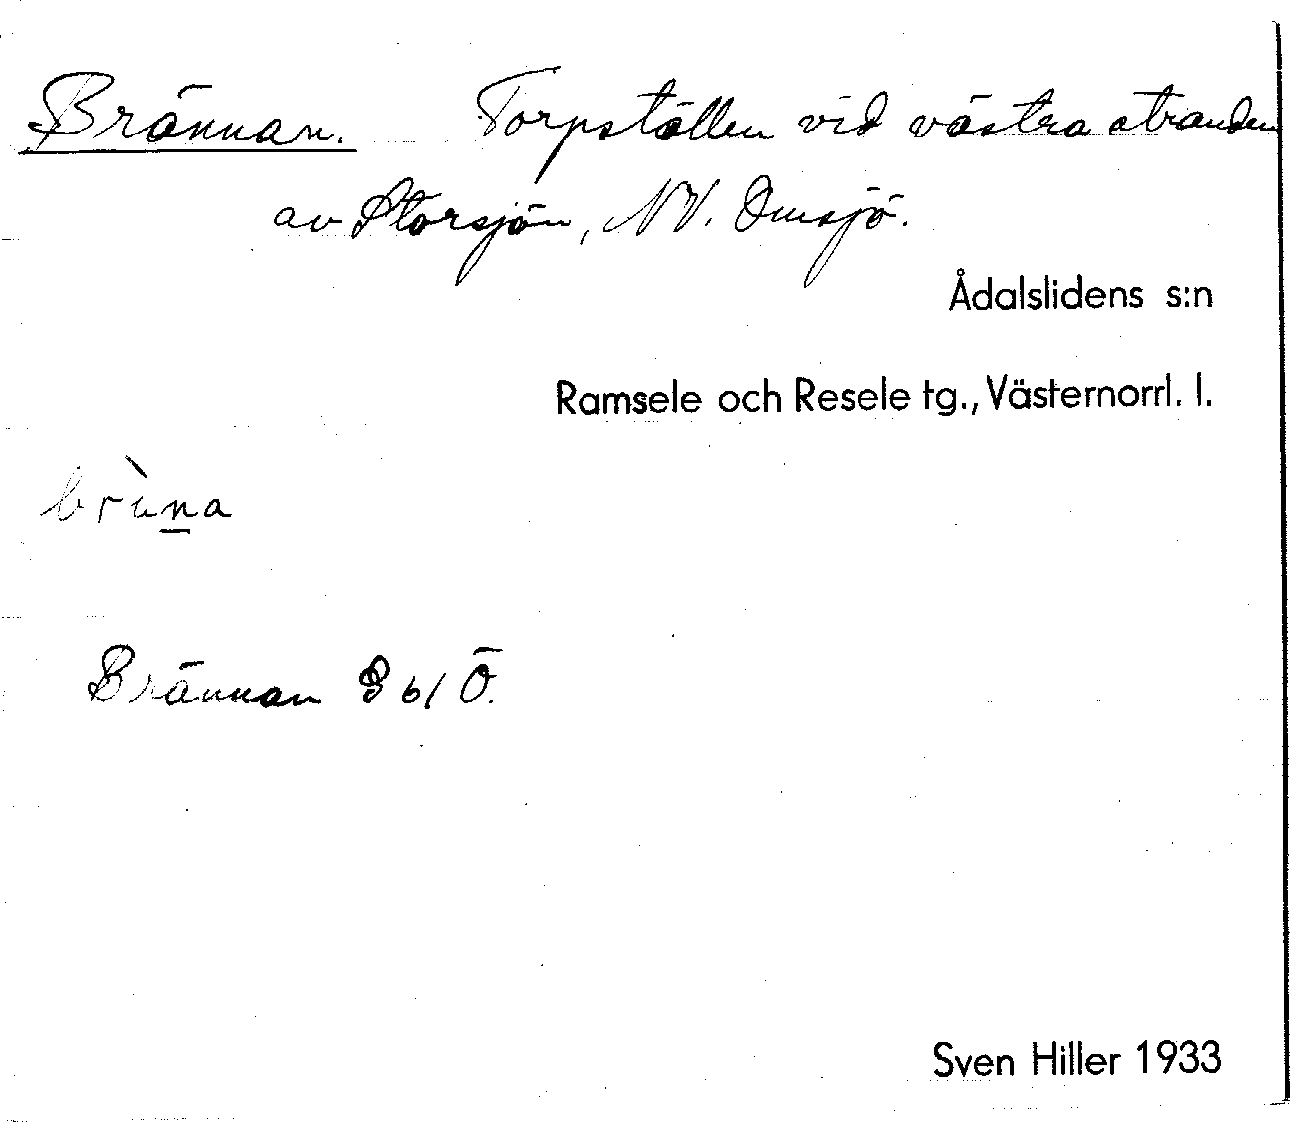 Brännan. Torpställen vid västra stranden
av Storsjön, NV. Omsjö.
Ådalslidens s:n
Ramsele och Resele tg., Västernorrl. l.
Brännan G 61 Ö.
Sven Hiller 1933